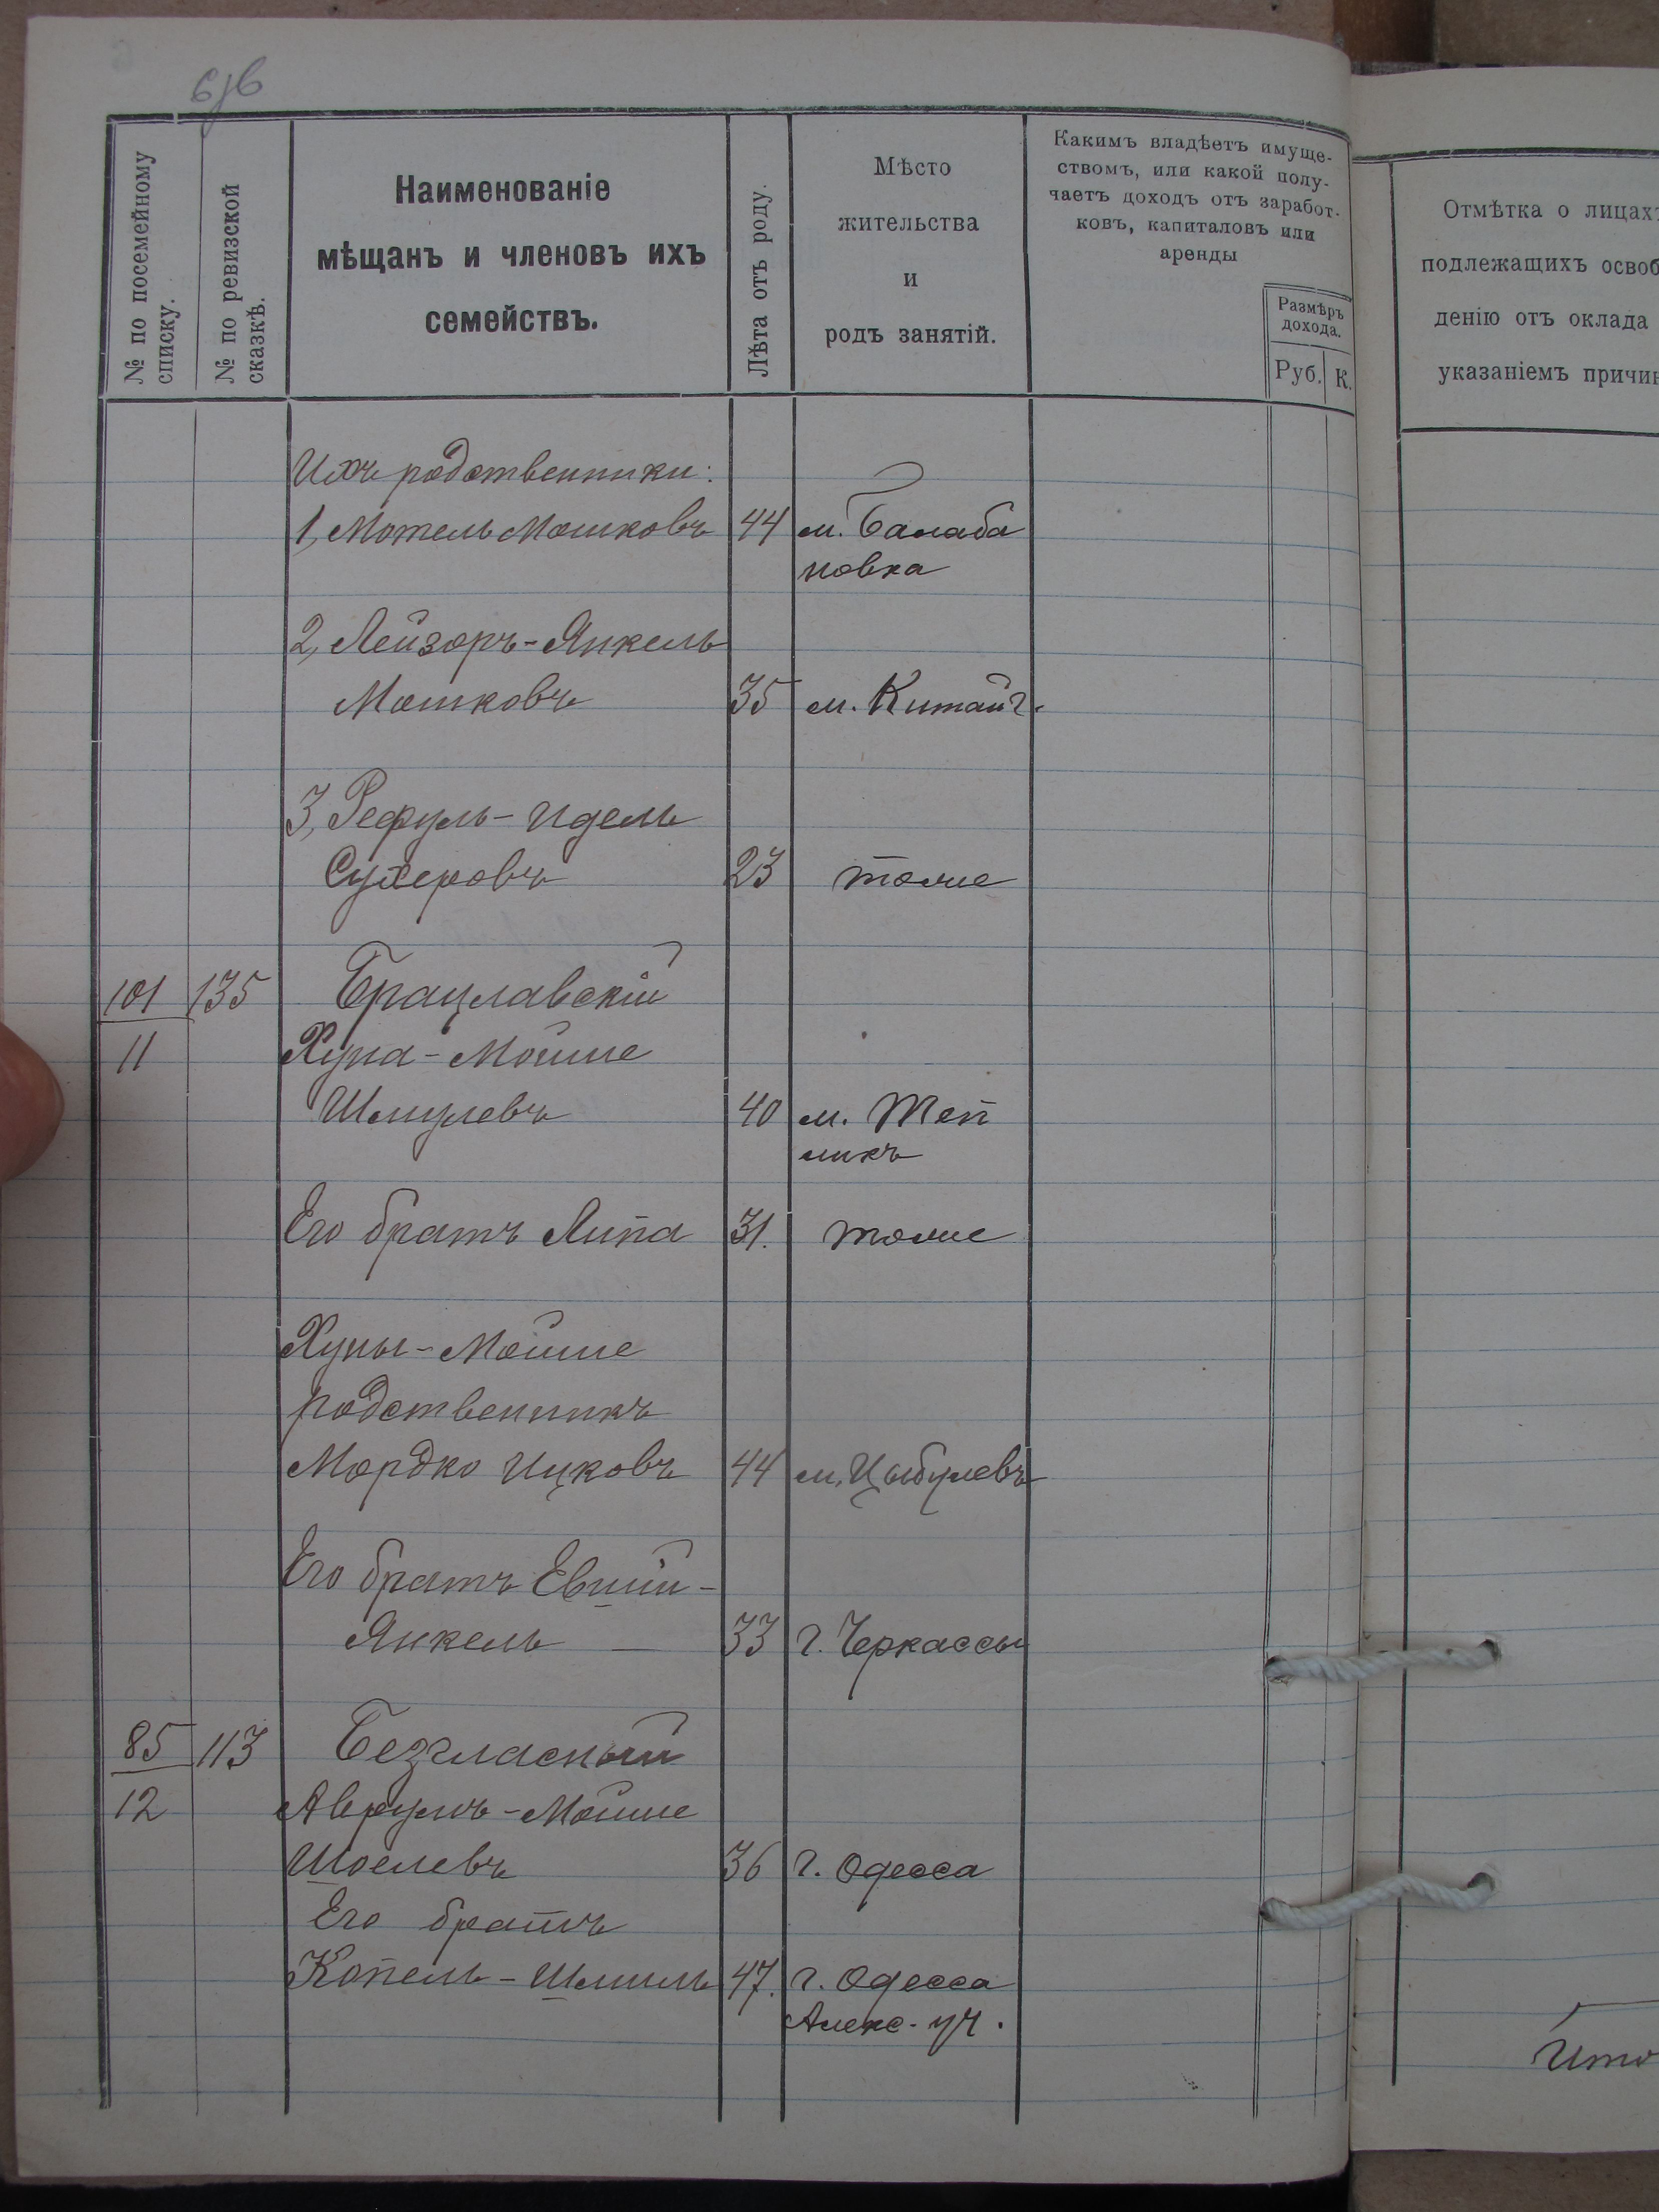 № по посемейному
списку.
№ по ревизской
сказкѣ.
Наименованіе
мѣщанъ и членовъ ихъ
семействъ.
Лѣта отъ роду.
Мѣсто
жительства
и
родъ занятій.
Какимъ владѣетъ имуще-
ствомъ, или какой полу-
чаетъ доходъ отъ заработ-
ковъ, капиталовъ или
аренды
Размѣръ
дохода.
Руб. К.
Отмѣтка о лицахъ
подлежащихъ освоб
денію отъ оклада
указаніемъ причин
Ихъ родственники:
1, Мотель Мошковъ 44 м. Балаба
новка
2, Лейзоръ-Янкель
Мошковъ 35 м. Китайг.
3, Рефуль-Идель
Сухеровъ 23 тоже
101 135 Брацлавскій
11 Хуна-Мойше
Шмулевъ 40 м. Теп
ликъ
Его братъ Липа 31. тоже
Хуны-Мойше
родственникъ
Мордко Ицковъ 44 м. Цыбулевъ
Его братъ Евшій-
Янкель — 33 г. Черкассы
85 113 Безгласный
12 Аврумъ-Мойше
Шоелевъ 36 г. Одесса
Его братъ
Копель-Шмиль 47. г. Одесса
Алекс. уч.
Ито